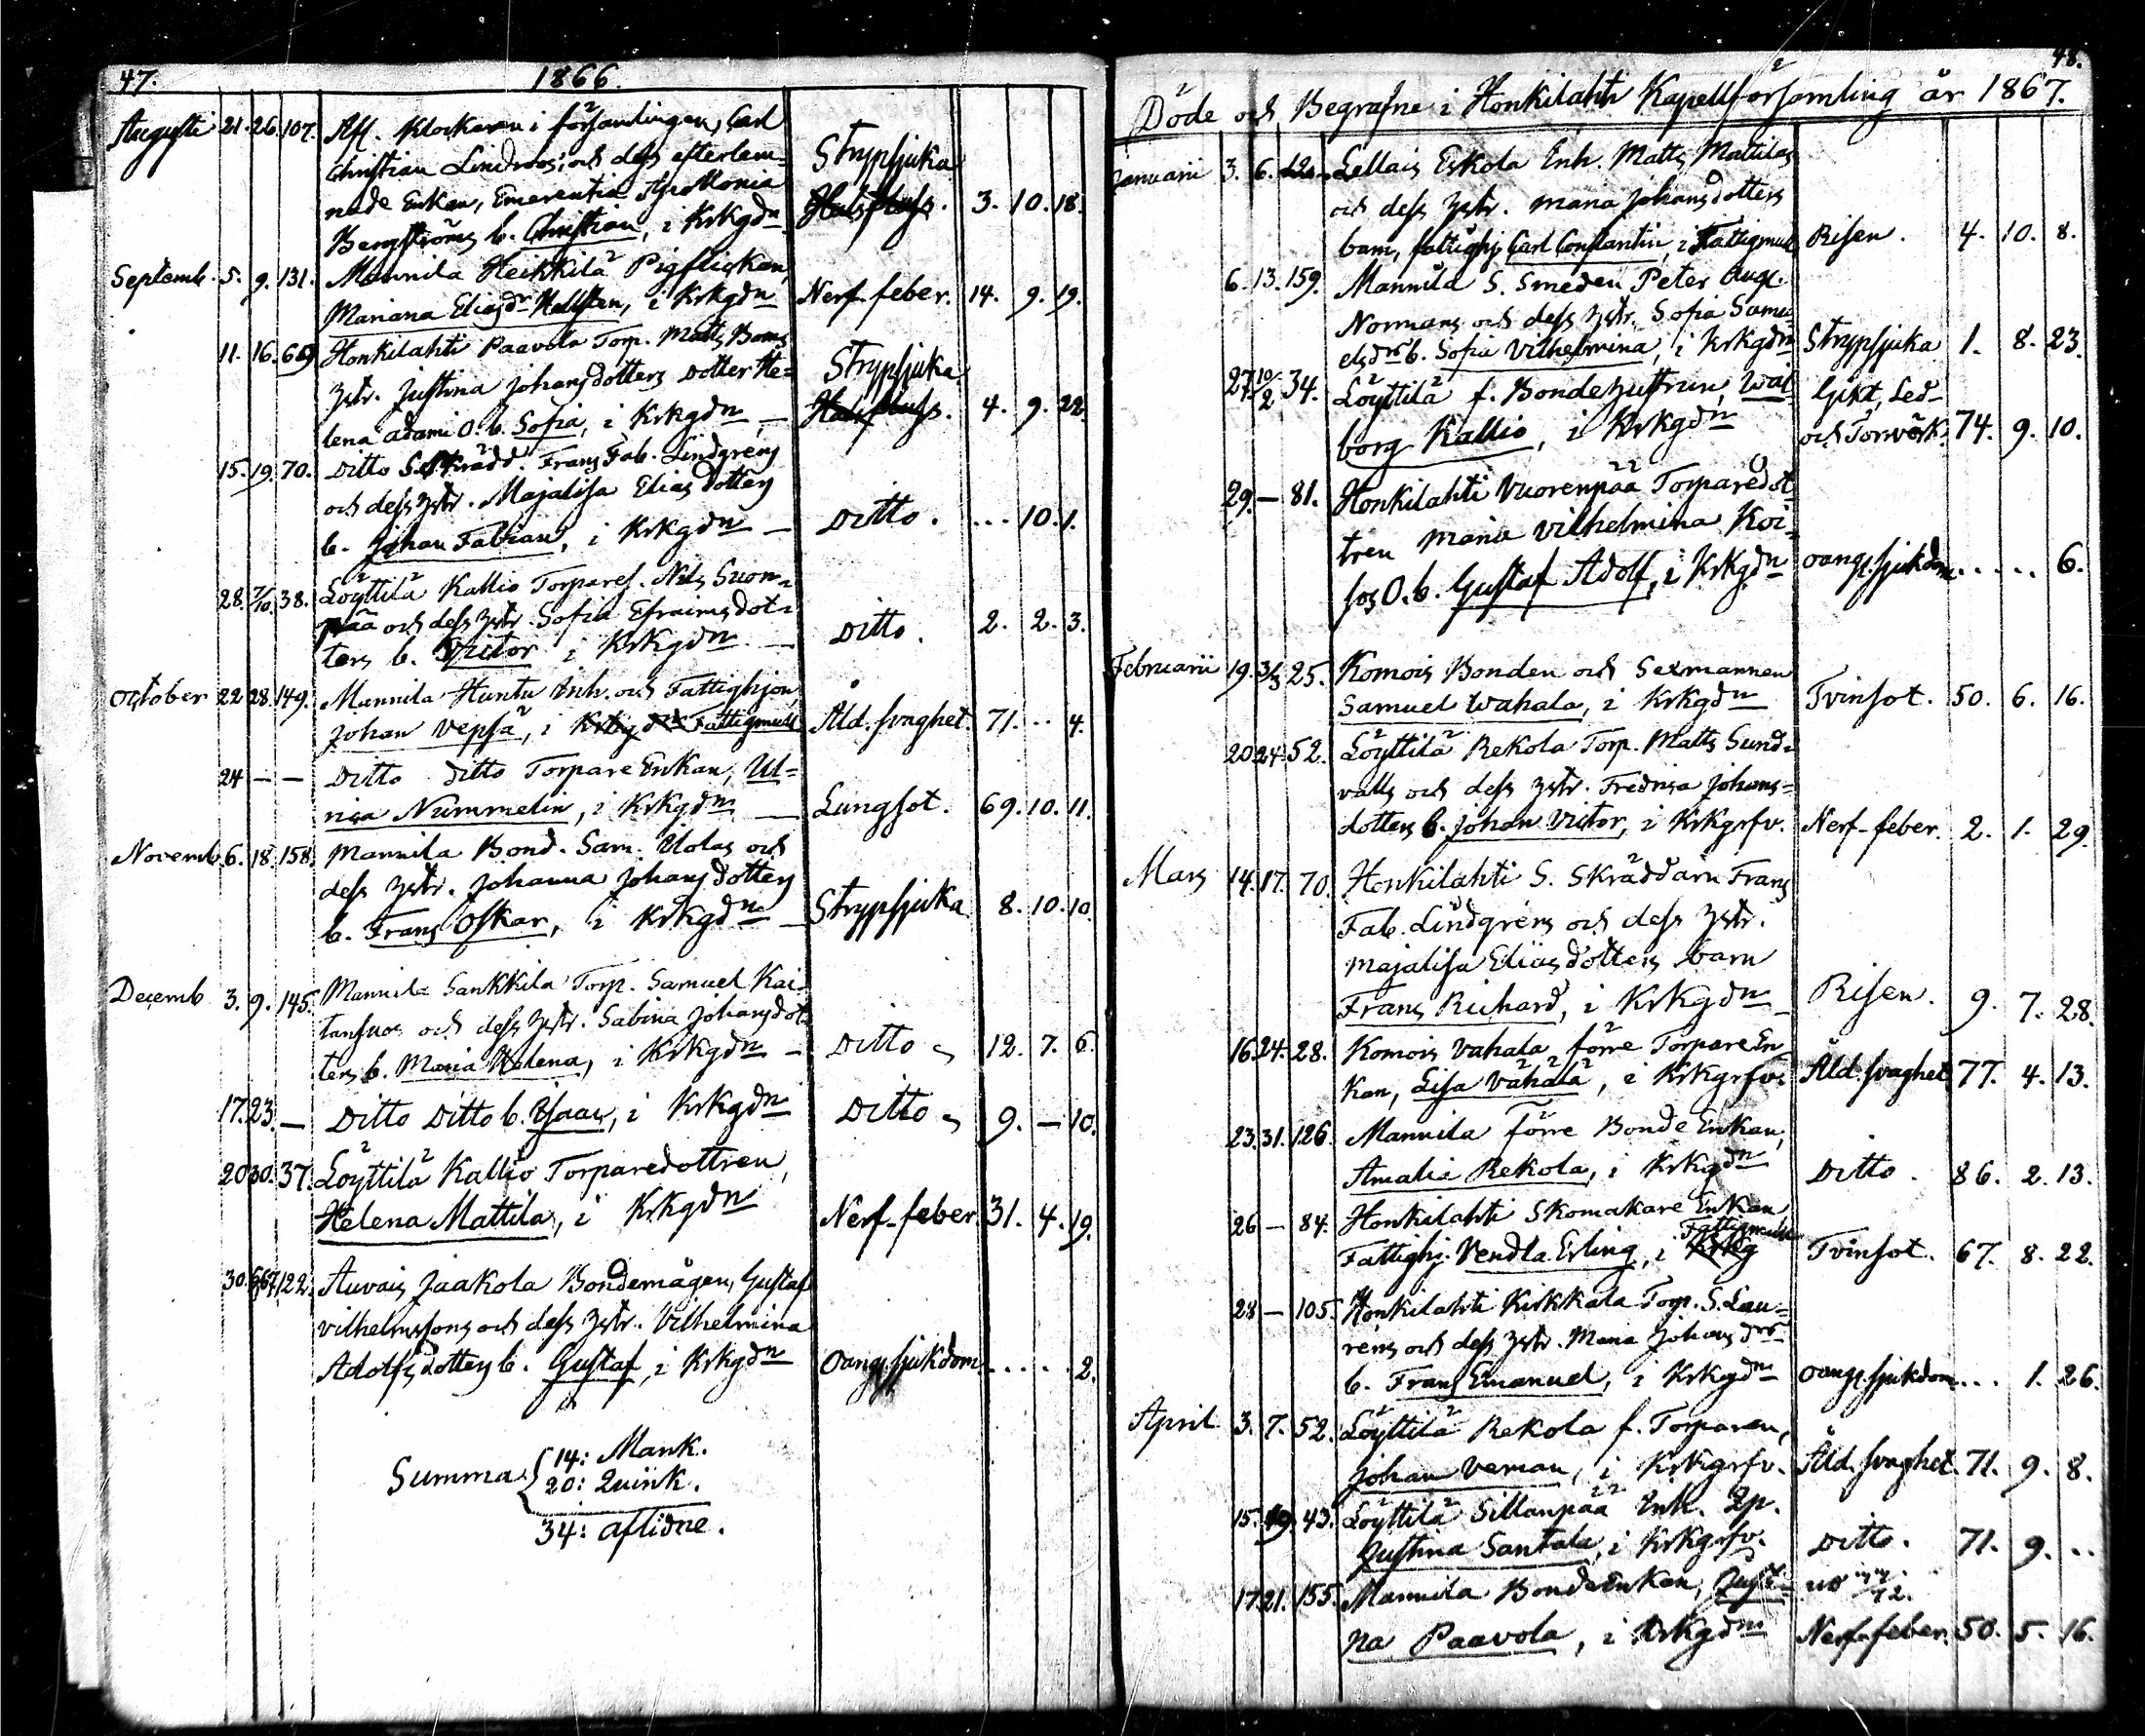 47. 1866.
Augusti 21. 26. 107. Afl. Klockaren i församlingen, Carl
Christian Lindroos, och dess efterlem-
nade Enkan, Emerentia Apollonia Strypsjuka
Bergströms b. Christian, i Krkgdn Halsfluss. 3. 10. 18.
Septemb. 5. 9. 131. Mannila Heikkilä Pigflickan,
Mariana Eliasdr Hellsten, i Krkgdn Nerf-feber. 14. 9. 19.
11. 16. 69. Honkilahti Paavola Torp. Matts Boms
hstr. Justina Johansdotters Dotter He- Strypsjuka
lena Adami O. b. Sofia, i Krkgdn Halsfluss. 4. 9. 22.
15. 19. 70. Ditto S. Skrädd. Frans Fab. Lindgrens
och dess hstr. Majalisa Elias dotters
b. Johan Fabian, i Krkgdn Ditto. ... 10. 1.
28. 7/10. 38. Löyttilä Kallio Torpares. Nils Suon-
pää och dess hstr. Sofia Efraimsdot-
ters b. Victor i Krkgdn Ditto. 2. 2. 3.
October 22 28. 149. Mannila Huntu Inh. och Fattighjon
Johan Vepsä, i Krkgdn Fattigmull Åld. svaghet. 71. .. 4.
24 — — Ditto Ditto Torpare Enkan, Ul-
rica Nummelin, i Krkgdn Lungsot. 69. 10. 11.
Novemb. 6. 18. 158. Mannila Bond. Sam. Uolas och
dess hstr. Johanna Johansdotters
b. Frans Oskar, i Krkgdn Strypsjuka 8. 10. 10.
Decemb. 3. 9. 145. Mannila Sankkila Torp. Samuel Kai-
tansuos och dess hstr. Sabina Johansdot-
ters b. Maria Helena, i Krkgdn Ditto 12. 7. 6.
17. 23. — Ditto Ditto b. Isaac, i Krkgdn Ditto 9. — 10.
20 30. 37. Löyttilä Kallio Torparedottren,
Helena Mattila, i Krkgdn Nerf-feber 31. 4. 19.
30. 6/1 67. 122. Auvais Jaakola Bondemågen, Gustaf
Vilhelmssons och dess hstr. Vilhelmina
Adolfs dotters b. Gustaf, i Krkgdn Oang. sjukdom ... .. 2.
Summa { 14: Mank.
20: Quink.
34: aflidne.
48.
Döde och Begrafne i Honkilahti Kapellförsamling år 1867.
Januarii 3. 6. Lellais Eskola Enh. Matts Mattilas
och dess hstr. Maria Johansdotters
barn, fattighj. Carl Constantin, i Fattigmull Risen. 4. 10. 8.
6. 13. 159. Mannila S. Smeden Peter Aug.
Normans och dess hstr. Sofia Samu-
elsdrs b. Sofia Vilhelmina, i Krkgdn Strypsjuka 1. 8. 23.
27. 10/2 34. Löyttilä f. Bondehustrun, Wal- Gikt, Led-
borg Kallio, i Krkgdn och Torrvärk. 74. 9. 10.
29. — 81. Honkilahti Vuorenpää Torparedot-
tren Maria Vilhelmina Koi-
sos O. b. Gustaf Adolf, i Krkgdn oang. sjukdom. .. ... 6.
Februarii 19. 3/3 25. Komois Bonden och Sexmannen
Samuel Wahala, i Krkgdn Tvinsot. 50. 6. 16.
20 24. 52. Löyttilä Rekola Torp. Matts Sund-
valls och dess hstr. Fredrica Johans-
dotters b. Johan Victor, i Krkgrfv. Nerf-feber. 2. 1. 29.
Mars 14. 17. 70. Honkilahti S. Skräddarn Frans
Fab. Lindgrens och dess hstr.
Majalisa Elias dotters barn
Frans Richard, i Krkgdn Risen. 9. 7. 28.
16. 24. 28. Komois Vahala förre Torpare En-
kan, Lisa Vähälä, i Krkgrfv. Åld. svaghet 77. 4. 13.
23. 31. 126. Mannila förre Bonde Enkan,
Amalia Rekola, i Krkgdn Ditto. 86. 2. 13.
26 — 84. Honkilahti Skomakare Enkan
Fattighj. Vendla Erling, i Krkg Fattigmull Tvinsot. 67. 8. 22.
28 — 105. Honkilahti Kirkkala Torp. S. Lau-
réns och dess hstr. Maria Johansdrs
b. Frans Emanuel, i Krkgdn oang. sjukdom ... 1. 26.
April 3. 7. 52. Löyttilä Rekola f. Torparen,
Johan Veman, i Krkgrfv. Åld. svaghet. 71. 9. 8.
15. 19. 43. Löyttilä Sillanpää Enk. Qp.
Justina Santala, i Krkgrfv. Ditto. 71. 9. ..
17. 21. 155. Mannila Bonde Enkan, Justi-
na Paavola, i Krkgdn Nerf-feber. 50. 5. 16.